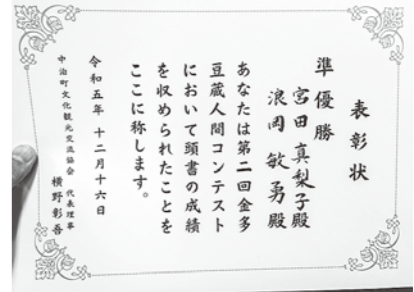 表彰状
準優勝
宮田真梨子殿
浪岡敏勇殿
あなたは第二回金多
豆蔵人間コンテスト
において頭書の成績
を収められたことを
ここに称します。
令和五年十二月十六日
中泊町文化観光交流協会 代表理事
横野彰吾